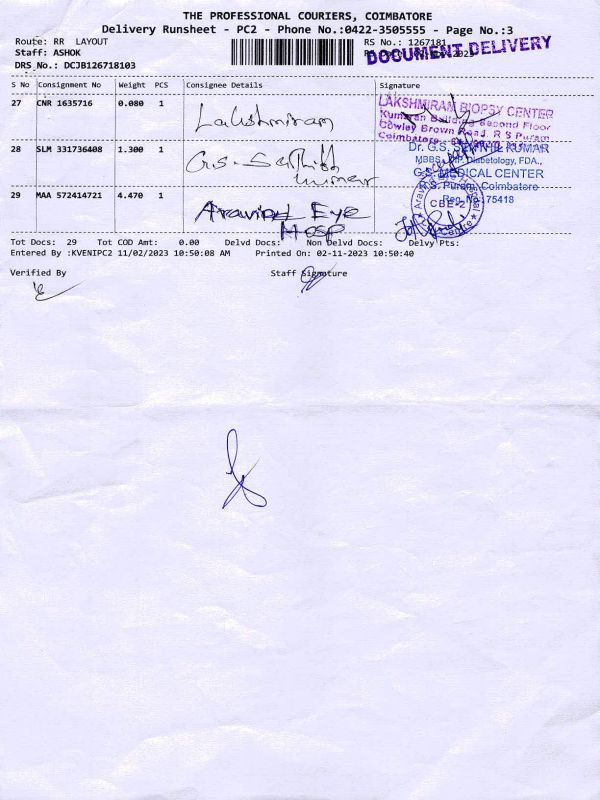 THE PROFESSIONAL COURIERS, COIMBATORE
Delivery Runsheet - PC2 - Phone No.:0422-3505555 - Page No.:3
Route: RR LAYOUT
RS No.: 1267181
Staff: ASHOK
DOCUMENT DELIVERY
DRS No.: DCJB126718103
S No Consignment No Weight PCS Consignee Details Signature
27 CNR 1635716 0.080 1 Lakshmiram
LAKSHMIRAM BIOPSY CENTER
Kumaran Building Second Floor
Cowley Brown Road, R S Puram
Coimbatore
28 SLM 331736408 1.300 1 G.S. Senthil
Kumar
Dr. G.S. SENTHIL KUMAR
MBBS., DIP. Diabetology, FDA.,
G.S. MEDICAL CENTER
R.S. Puram, Coimbatore
Reg No: 75418
29 MAA 572414721 4.470 1 Aravind Eye
Hosp
CBE-2
Tot Docs: 29 Tot COD Amt: 0.00 Delvd Docs: Non Delvd Docs: Delvy Pts:
Entered By :KVENIPC2 11/02/2023 10:50:08 AM Printed On: 02-11-2023 10:50:40
Verified By Staff Signature